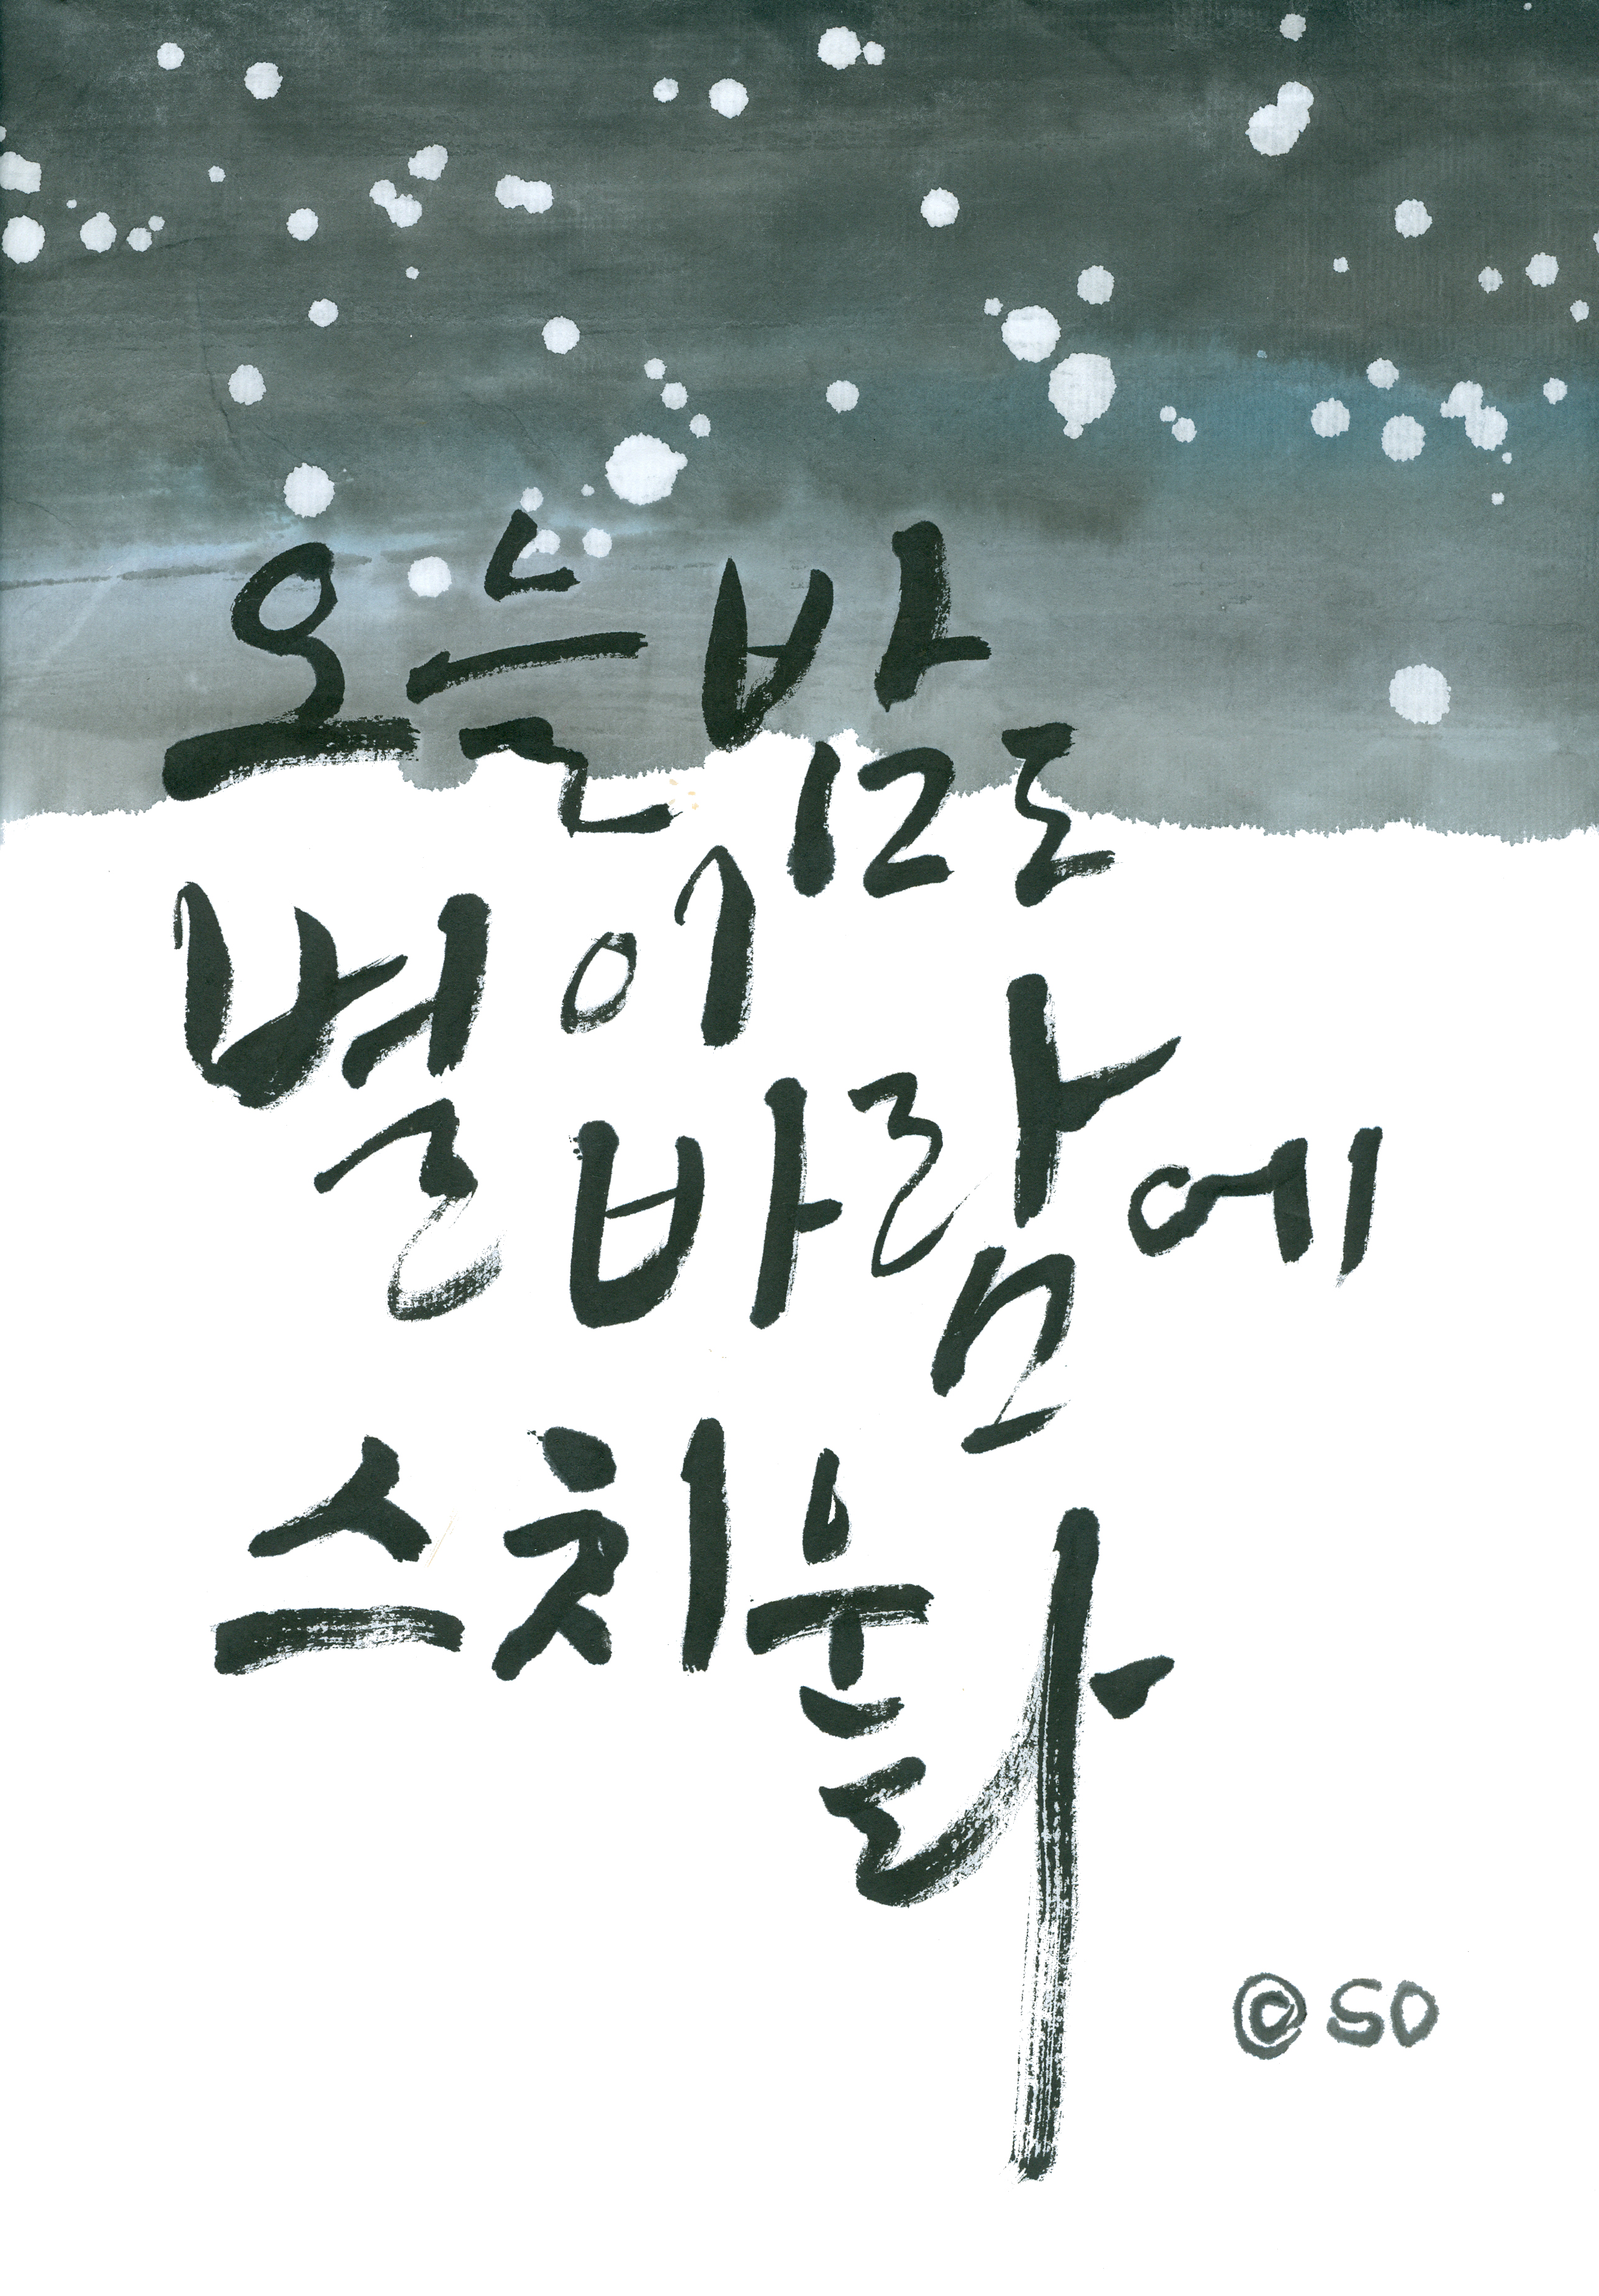 오늘밤도
별이
바람에
스치운다
© SO